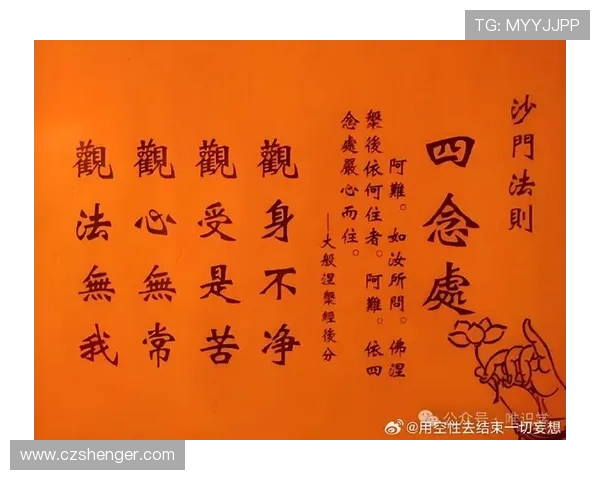 TG: MYYJJPP
沙門法則
四念處
阿難。如汝所問。佛涅
槃後依何住者。阿難。依四
念處嚴心而住。
——大般涅槃經後分
觀身不净
觀受是苦
觀心無常
觀法無我
公众号·唯识学
@用空性去结束一切妄想
www.czshenger.com